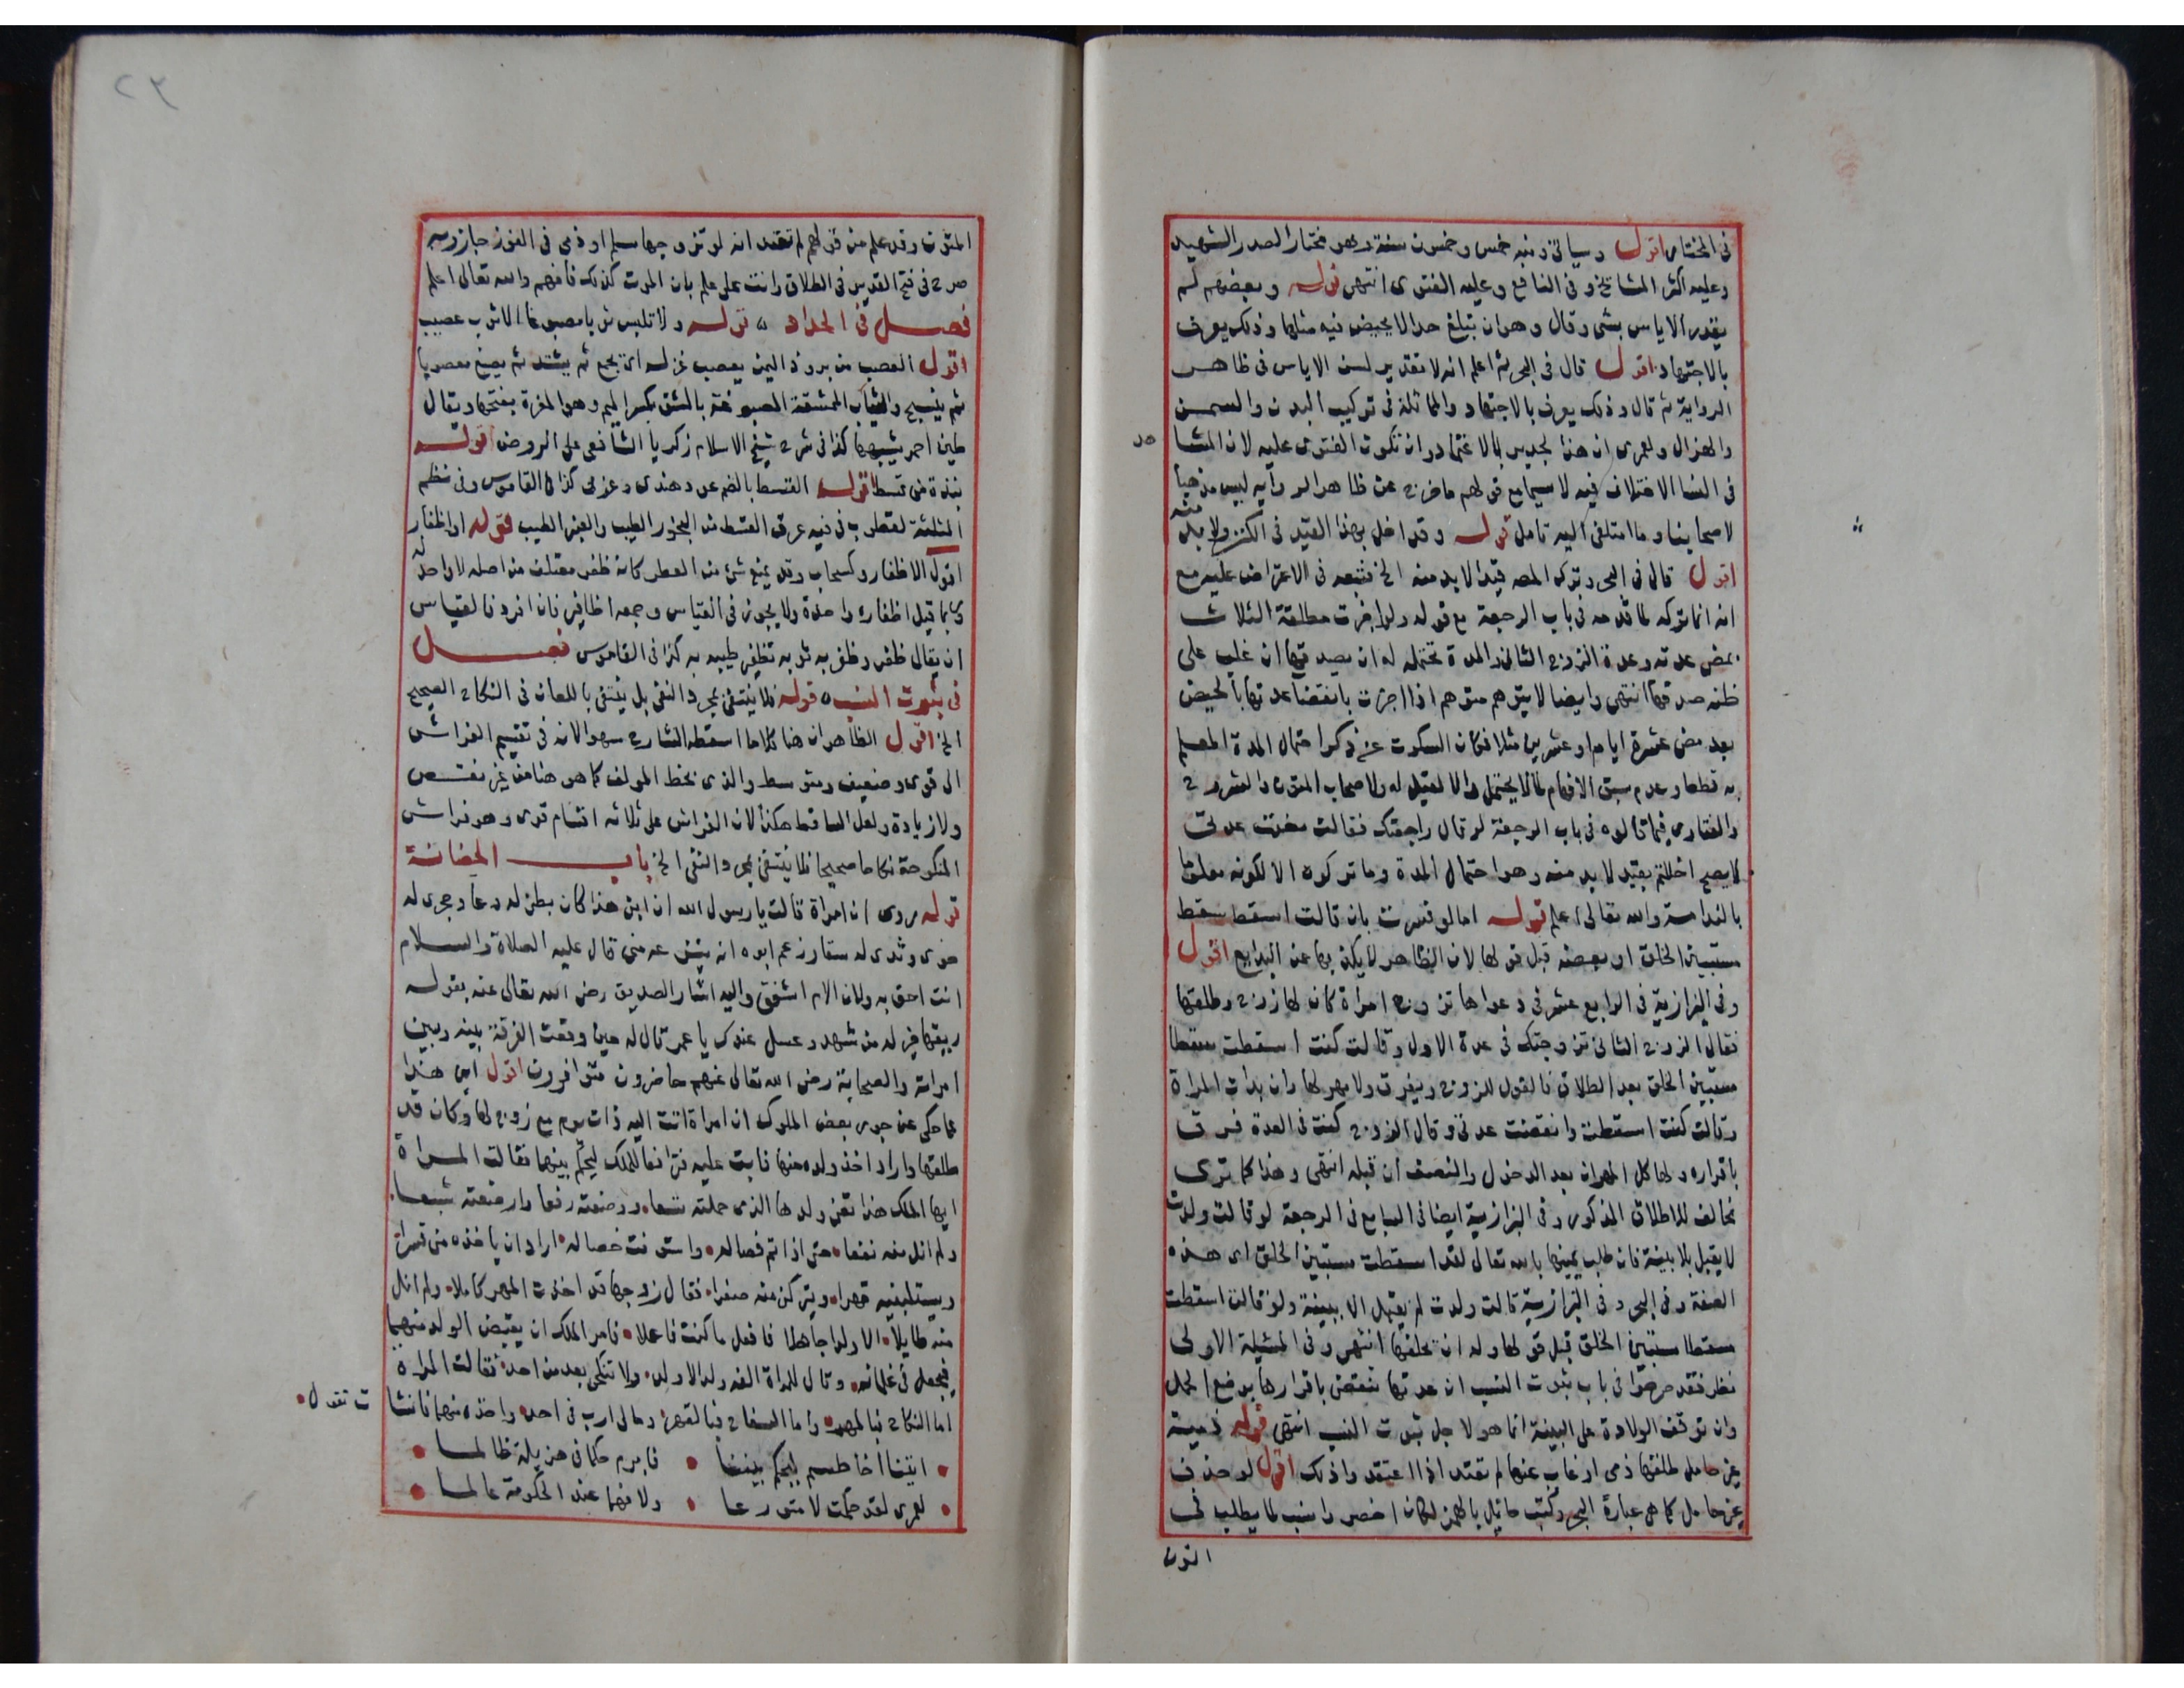 في المختار اقول وسياتي ومنه خمس وخمسون سنة وهو مختار الصدر الشهيد
وعليه اكثر المشايخ وفي النافع وعليه الفتوى انتهى قوله وبعضهم لم
يقدر الاياس بشي وقال وهو ان تبلغ حدا لا يحيض فيه مثلها وذلك يعرف
بالاجتهاد اقول قال في البحر ثم اعلم انه لا تقدير لسن الاياس في ظاهر
الرواية ثم قال وذلك يعرف بالاجتهاد والمماثلة في تركيب البدن والسمن
والهزال ولعمرى ان هذا لجدير بالاعتماد وان تكون الفتوى عليه لان المشا
صد
في النسا الاختلاف فيه لا سيما مع قولهم ما خرج عن ظاهر الرواية ليس مذهبا
لاصحابنا وما استلقى اليه تامل قوله وقد اخل بهذا القيد في الكنز ولا بد منه
اقول قال في البحر وترك المصه قيدا لا بد منه الخ فتبعه في الاعتراض عليه مع
انه انما تركه لما قدمه في باب الرجعة مع قوله ولو اخبرت مطلقة الثلاث
بمضى عدته وعدة الزوج الثاني والمدة تحتمله له ان يصدقها ان غلب على
ظنه صدقها انتهى وايضا لا يتوهم متوهم اذا اخبرت بانقضا عدتها بالحيض
بعد مضى عشرة ايام او عشرين مثلا فكان السكوت عن ذكر احتمال المدة المعلم
به قطعا وعدم سبق الافهام لما لا يحتمل والا لقيل له ولاصحاب المتون والشروح
والفتاوى فيما قالوه في باب الرجعة لو قال راجعتك فقالت مضت عدتى
لا يصح اخللتم بقيد لا بد منه وهو احتمال المدة وما تركوه الا لكونه معلوما
بالبداهة والله تعالى اعلم قوله اما لو فسرت بان قالت اسقطت سقط
مستبين الخلق او بعضه قبل قولها لان الظاهر لا يكذبها عن البدايع اقول
وفي البزازية في الرابع عشر في دعواها تزوج امراة كان لها زوج وطلقها
فقال الزوج الثاني تزوجتك في عدة الاول وقالت كنت اسقطت سقطا
مستبين الخلق بعد الطلاق فالقول للزوج ويفرق ولا مهر لها وان بدات المراة
وقالت كنت اسقطت وانقضت عدتي وقال الزوج كنت في العدة فرق
باقراره ولها كل المهران بعد الدخول والنصف ان قبله انتهى وهذا كما ترى
مخالف للاطلاق المذكور وفي البزازية ايضا في السابع في الرجعة لو قالت ولدت
لا يقبل بلا بينة فان طلب يمينها بالله تعالى لقد اسقطت مستبين الخلق اى هذه
الصفة وفي البحر وفي البزازية قالت ولدت لم يقبل الا ببينة ولو قالت اسقطت
سقطا مستبين الخلق قبل قولها وله ان تحلفها انتهى وفي المسئلة الاولى
نظر فقد صرحوا في باب ثبوت النسب ان عدتها تنقضى باقرارها بوضع الحمل
وان توقف الولادة على البينة انما هو لاجل ثبوت النسب انتهى قوله ذمية
غير حامل طلقها ذمى او غاب عنها لم تعتد اذا اعتقد واذلك اقول لو حذف
غير حامل كما هى عبارة البحر وكتب حائل بالهمز لكان اخصر وانسب لما يطلب في
المتون
٢٣
المتون وقد علم من قولهم لم تعتد انه لو تزوجها مسلم او ذمى في الفور جاز وبه
صرح في فتح القدير في الطلاق وانت على علم بان الموت كذلك فافهم والله تعالى اعلم
فصل في الحداد قوله ولا تلبس ثوبا مصبوغا الا ثوب عصب
اقول العصب من برود اليمن يعصب غزله اى يجمع ثم يشد ثم يصبغ معصوبا
ثم ينسج والثياب الممشقة المصبوغة بالمشق بكسر الميم وهو المغرة بفتحها ويقال
طين احمر يشبهها كذا في شرح شيخ الاسلام زكريا الشافعى على الروض قوله
نبذة من قسط اقول القسط بالضم عود هندى وعربى كذا في القاموس وفي نظم
المثلثة لقطرب في فيه عرف القسط من البخور الطيب والعنبر الطيب قوله او اظفار
اقول الاظفار وكسحاب وقد يمنع شئ من العطر كانه ظفر مقتلف من اصله لا واحد له
وربما قيل اظفارة واحدة ولا يجوز في القياس وجمعه اظافير فان افرد فالقياس
ان يقال ظفر وظفر به ثوبه تظفير طيبه به كذا في القاموس فصل
في ثبوت النسب قوله فلا ينتفى بمجرد النفى بل ينتفى باللعان في النكاح الصحيح
الخ اقول الظاهر ان هنا كلاما اسقطه الشارح سهوا لانه في تقسيم الفراش
الى قوى وضعيف ومتوسط والذى بخط المولف كما هو هنا من غير نقص
ولا زيادة ولعل الساقط هكذا لان الفراش على ثلاثه اقسام قوى وهو فراش
المنكوحة نكاحا صحيحا فلا ينتفى بمجرد النفى الخ باب الحضانة
قوله روى ان امراة قالت يا رسول الله ان ابنى هذا كان بطنى له وعا وحجرى له
حوى وثدى له سقا وزعم ابوه انه ينزعه منى قال عليه الصلاة والسلام
انت احق به ولان الام اشفق واليه اشار الصديق رضى الله تعالى عنه بقوله
ريقها خير له من شهد وعسل عندك يا عمر قال له حين وقعت الفرقة بينه وبين
امراته والصحابة رضى الله تعالى عنهم حاضرون متوافرون اقول اين هذا
مما حكى عن جور بعض الملوك ان امراة اتت اليه ذات يوم مع زوج لها وكان قد
طلقها واراد اخذ ولده منها فابت عليه فترافعا للملك ليحكم بينهما فقالت المراة
ايها الملك هذا تغنى ولدها الذى حملته تسعا ووضعته رفعا وارضعته شبعا
ولم انل منه نفعا حتى اذا تم فصاله واستوفت خصاله اراد ان ياخذه منى قسرا
ويستلبنيه قهرا ويتركنى منه صفرا فقال زوجها قد اخذت المهر كاملا ولم انل
منه طايلا الا ولدا جاهلا فافعل ما كنت فاعلا فامر الملك ان يقبض الولد منهما
فيجعل في غلمانه وقال للمراة الغه ولدا لاولد ولا تنكحى بعد من احد فقالت المراة
اما النكاح فبالمهر واما السفاح فبالقهر وما لى ارب في احد واخذه منهما فانشا
ت تقول
اتينا اخا طسم ليحكم بيننا فابرم حكما في هزيلة ظالما
لعمرى لقد حكمت لا متورعا ولا فهما عند الحكومة عالما